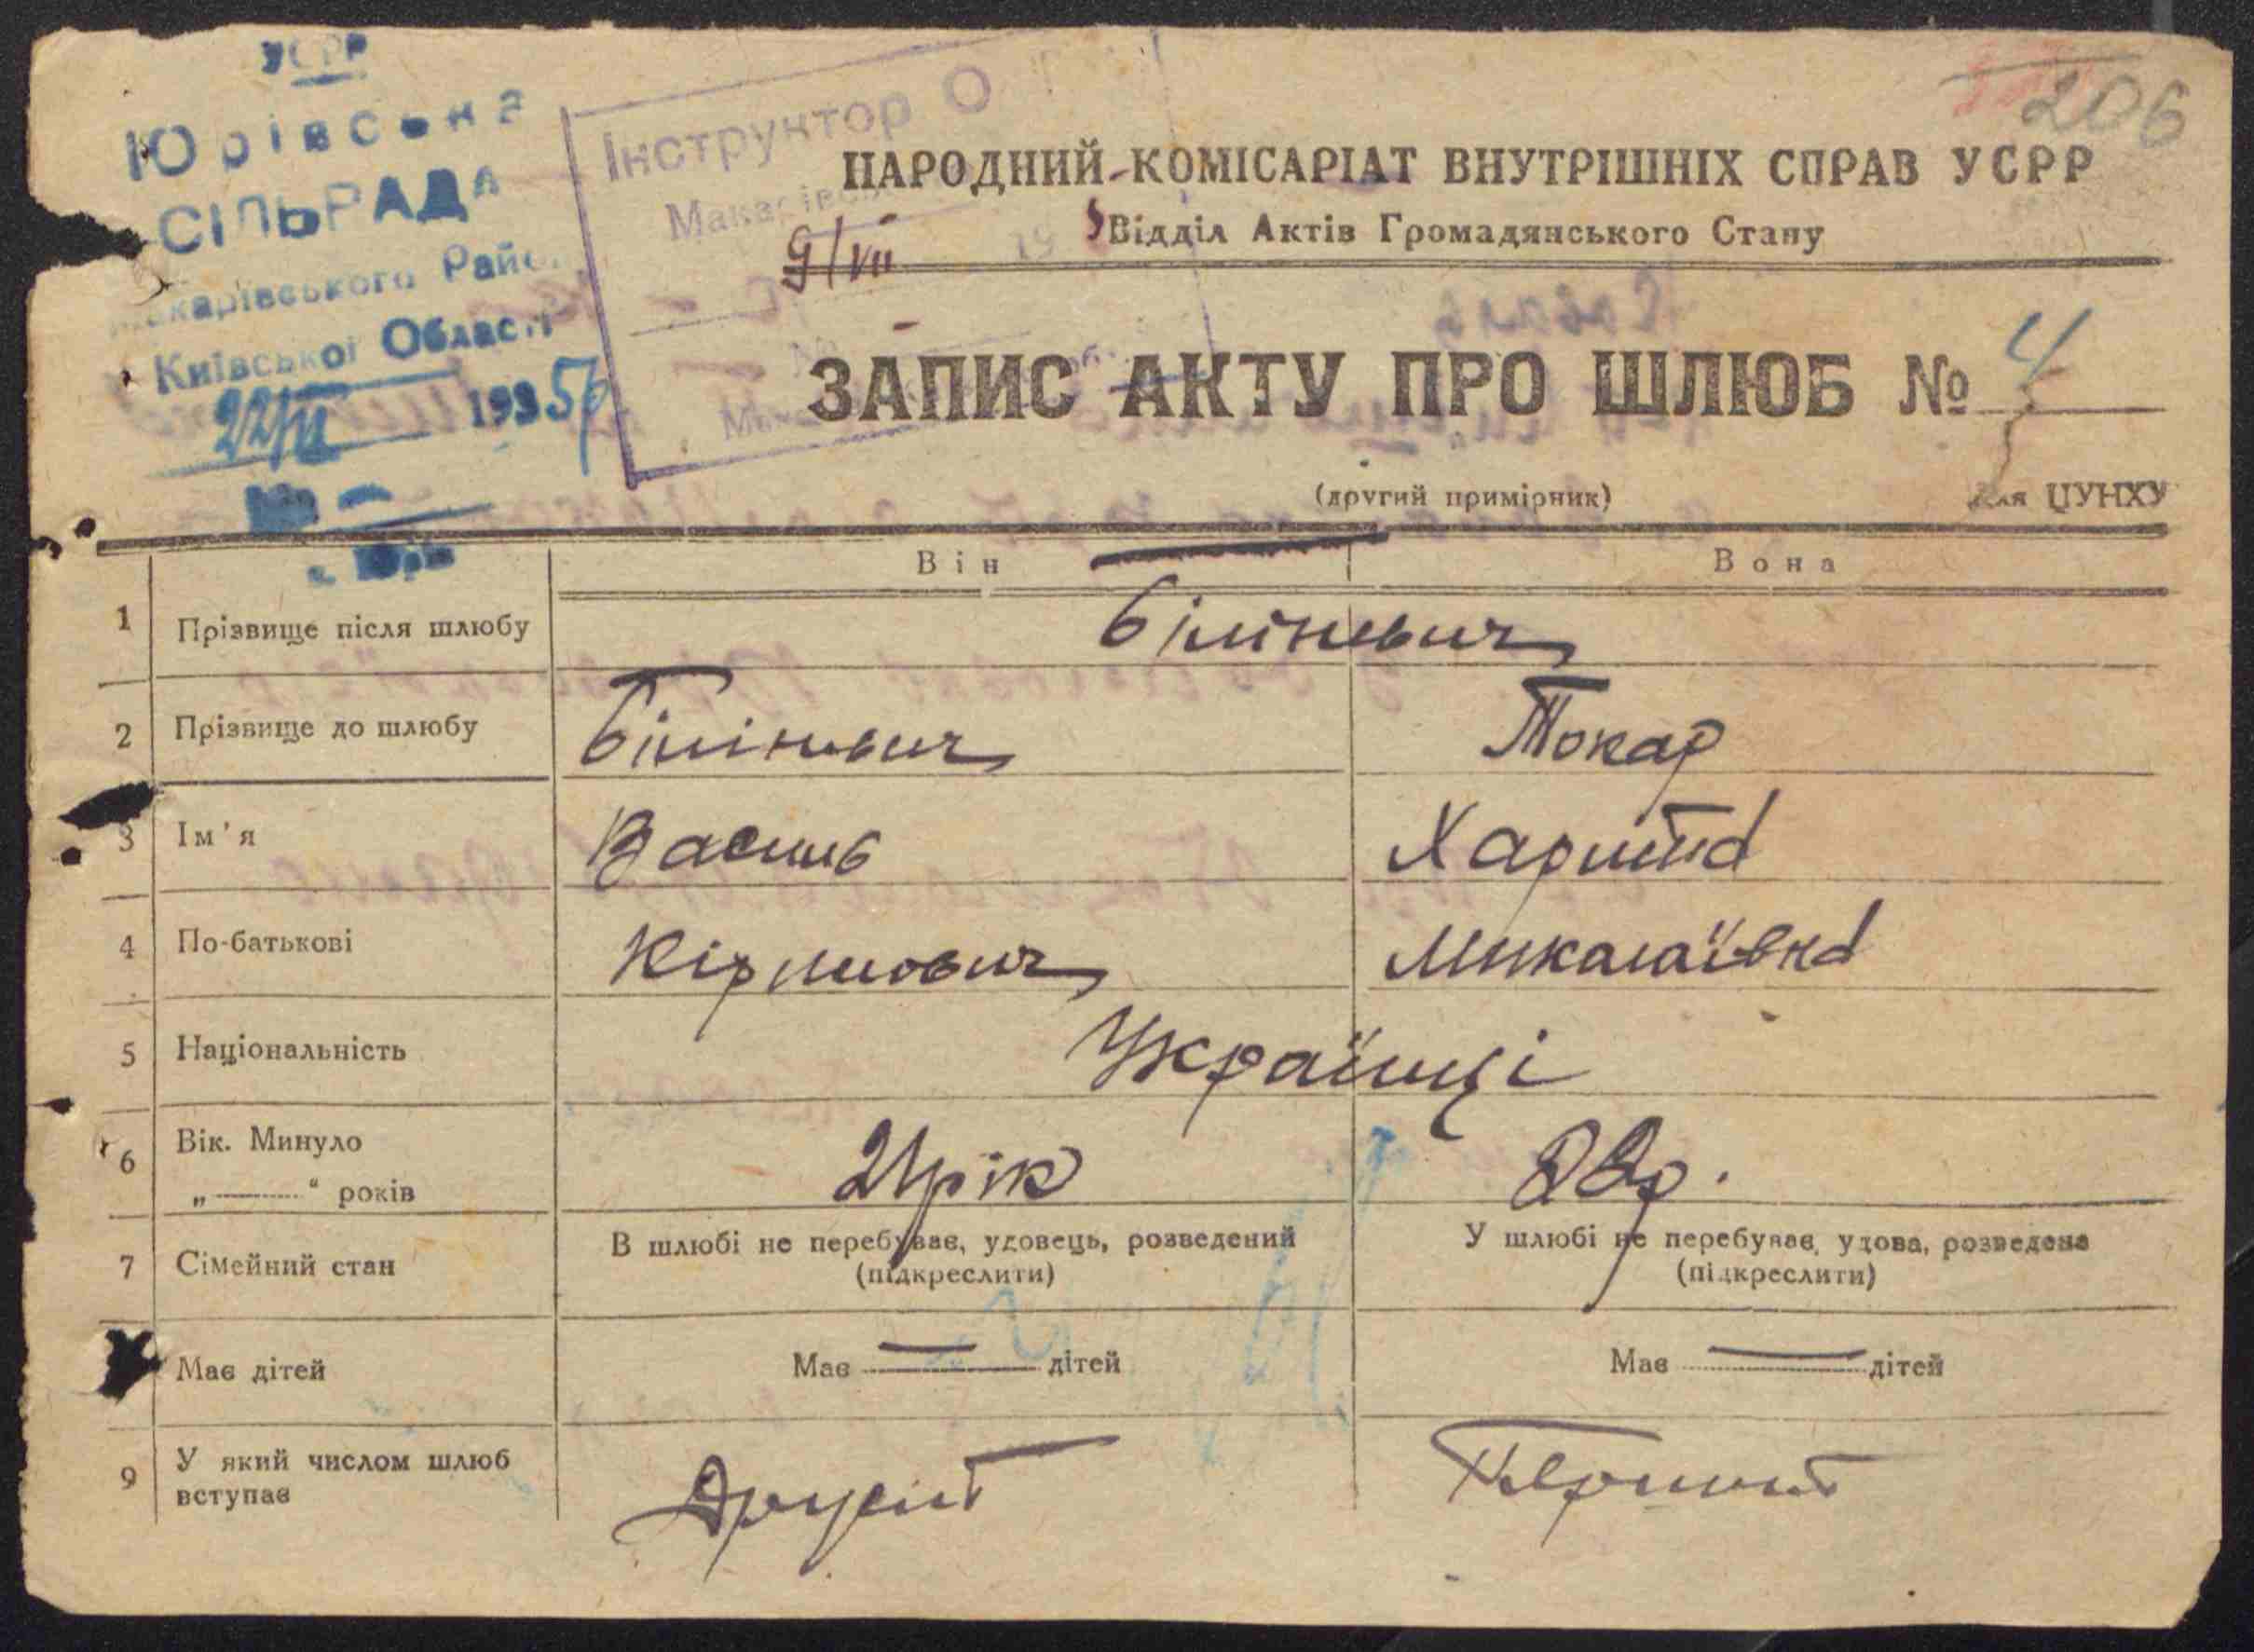 УСРР
Юрівська
СІЛЬРАДА
Макарівського Району
Київської Області
22/VI 1935
Інструктор
206
НАРОДНИЙ КОМІСАРІАТ ВНУТРІШНІХ СПРАВ УСРР
Відділ Актів Громадянського Стану
9/VII
ЗАПИС АКТУ ПРО ШЛЮБ № 4
(другий примірник) Для ЦУНХУ
Він Вона
1 Прізвище після шлюбу Білінович
2 Прізвище до шлюбу Білінович Токар
3 Ім'я Василь Харитина
4 По-батькові Кірилович Миколаївна
5 Національність Українці
6 Вік. Минуло 21 рік 22 р.
„ “ років
7 Сімейний стан В шлюбі не перебував, удовець, розведений У шлюбі не перебував, удова, розведена
(підкреслити) (підкреслити)
Має дітей Має — дітей Має — дітей
9 У який числом шлюб
вступає Другий Перший